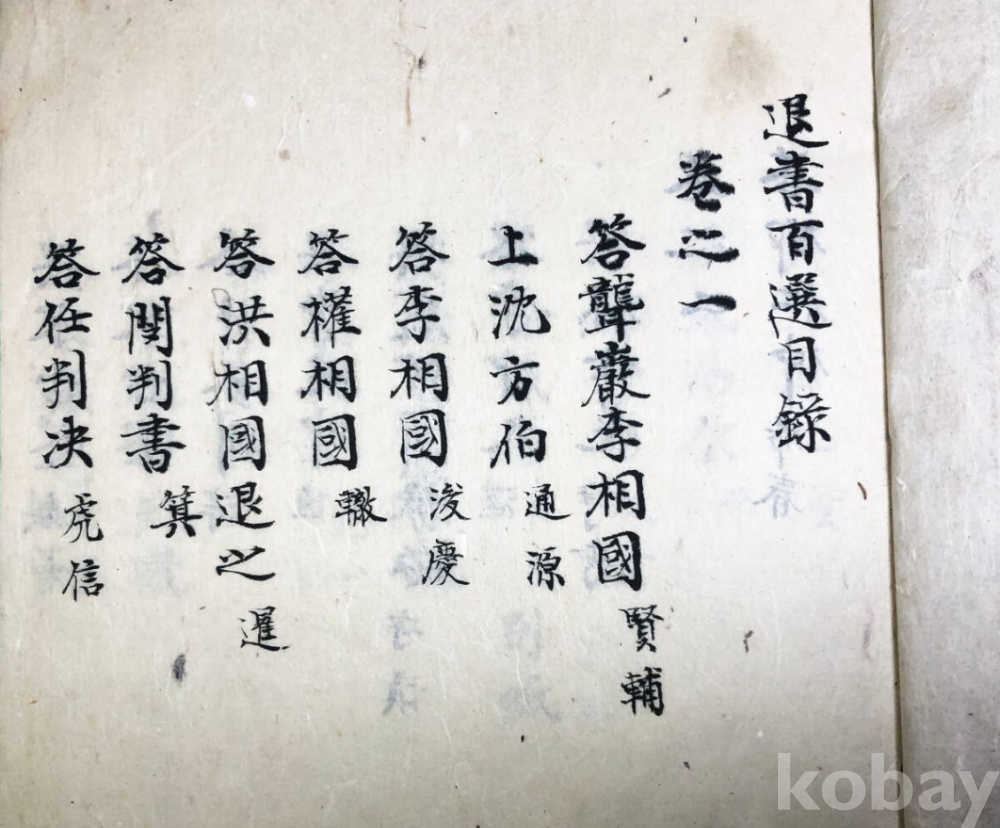 退書百選目錄
卷之一
答聾巖李相國 賢輔
上沈方伯 通源
答李相國 浚慶
答權相國 轍
答洪相國退之 暹
答閔判書 箕
答任判决 虎信
kobay